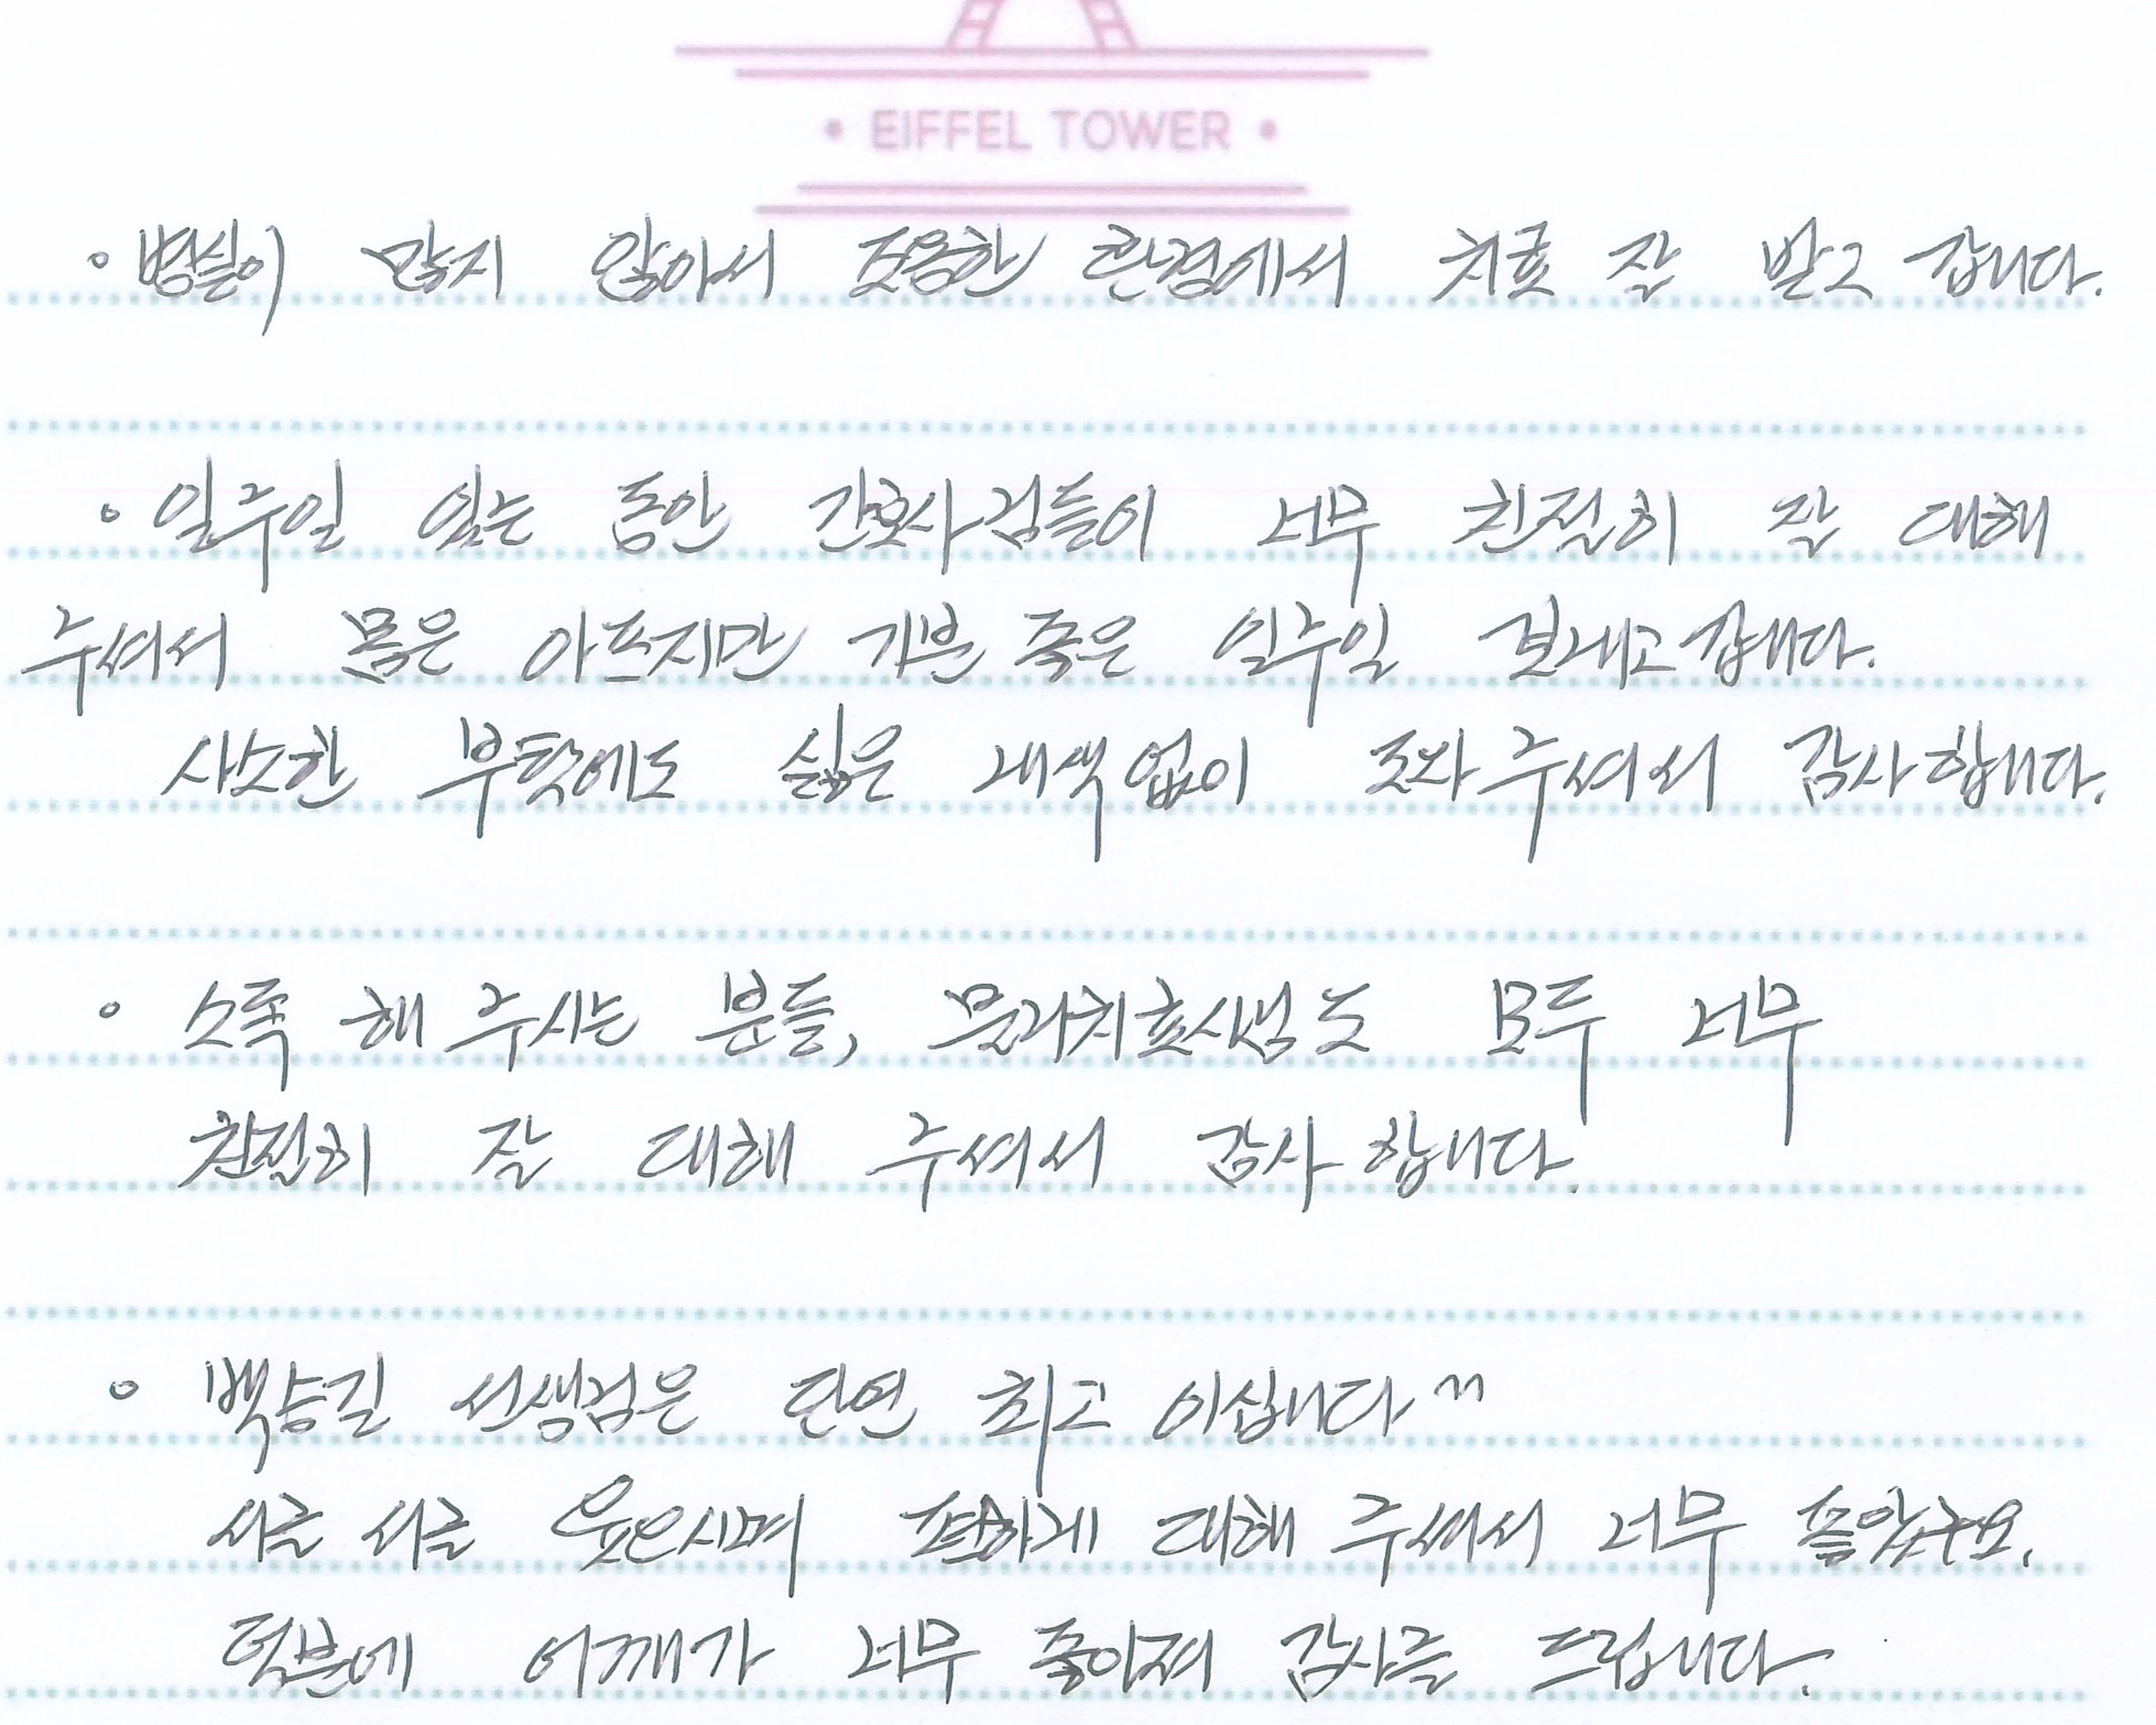 • EIFFEL TOWER •
◦ 병실이 많지 않아서 조용한 환경에서 치료 잘 받고 갑니다.
◦ 일주일 있는 동안 간호사님들이 너무 친절히 잘 대해
주셔서 몸은 아프지만 기분 좋은 일주일 보내고 갑니다.
사소한 부탁에도 싫은 내색 없이 도와주셔서 감사합니다.
◦ 소독 해 주시는 분들, 물리치료사님도 모두 너무
친절히 잘 대해 주셔서 감사 합니다.
◦ 백승길 선생님은 단연 최고 이십니다^^
서글 서글 웃으시며 편하게 대해 주셔서 너무 좋았구요.
덕분에 어깨가 너무 좋아져 감사를 드립니다.